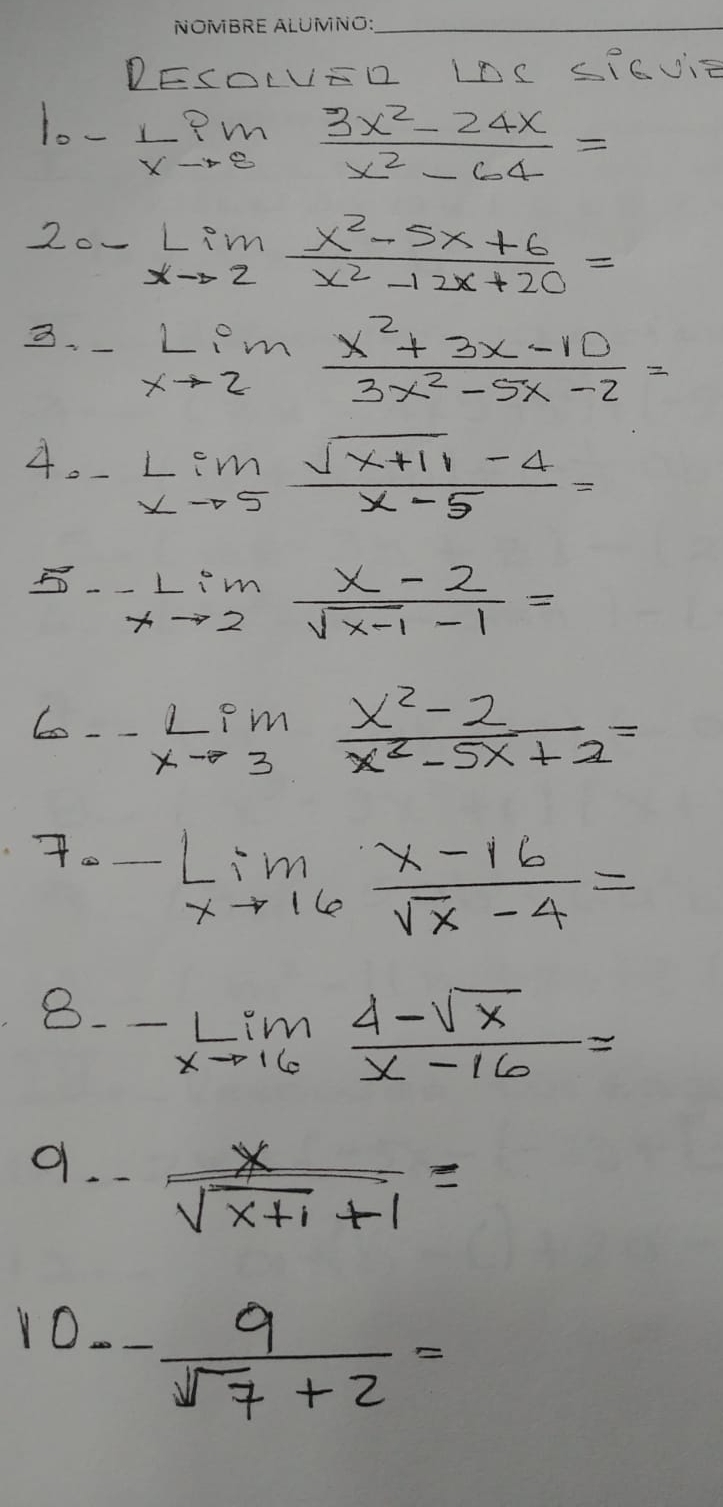 NOMBRE ALUMNO:
RESOLVER LOS SIGUIE
1.- Lim 3x² - 24x
x→8 x² - 64 =
2.- Lim x² - 5x + 6
x→2 x² - 12x + 20 =
3.- Lim x² + 3x - 10
x→2 3x² - 5x - 2 =
4.- Lim √x+11 - 4
x→5 x - 5 =
5.- Lim x - 2
x→2 √x-1 - 1 =
6.- Lim x² - 2
x→3 x² - 5x + 2 =
7.- Lim x - 16
x→16 √x - 4 =
8.- Lim 4 - √x
x→16 x - 16 =
9.- x
√x+1 + 1 =
10.- 9
√7 + 2 =